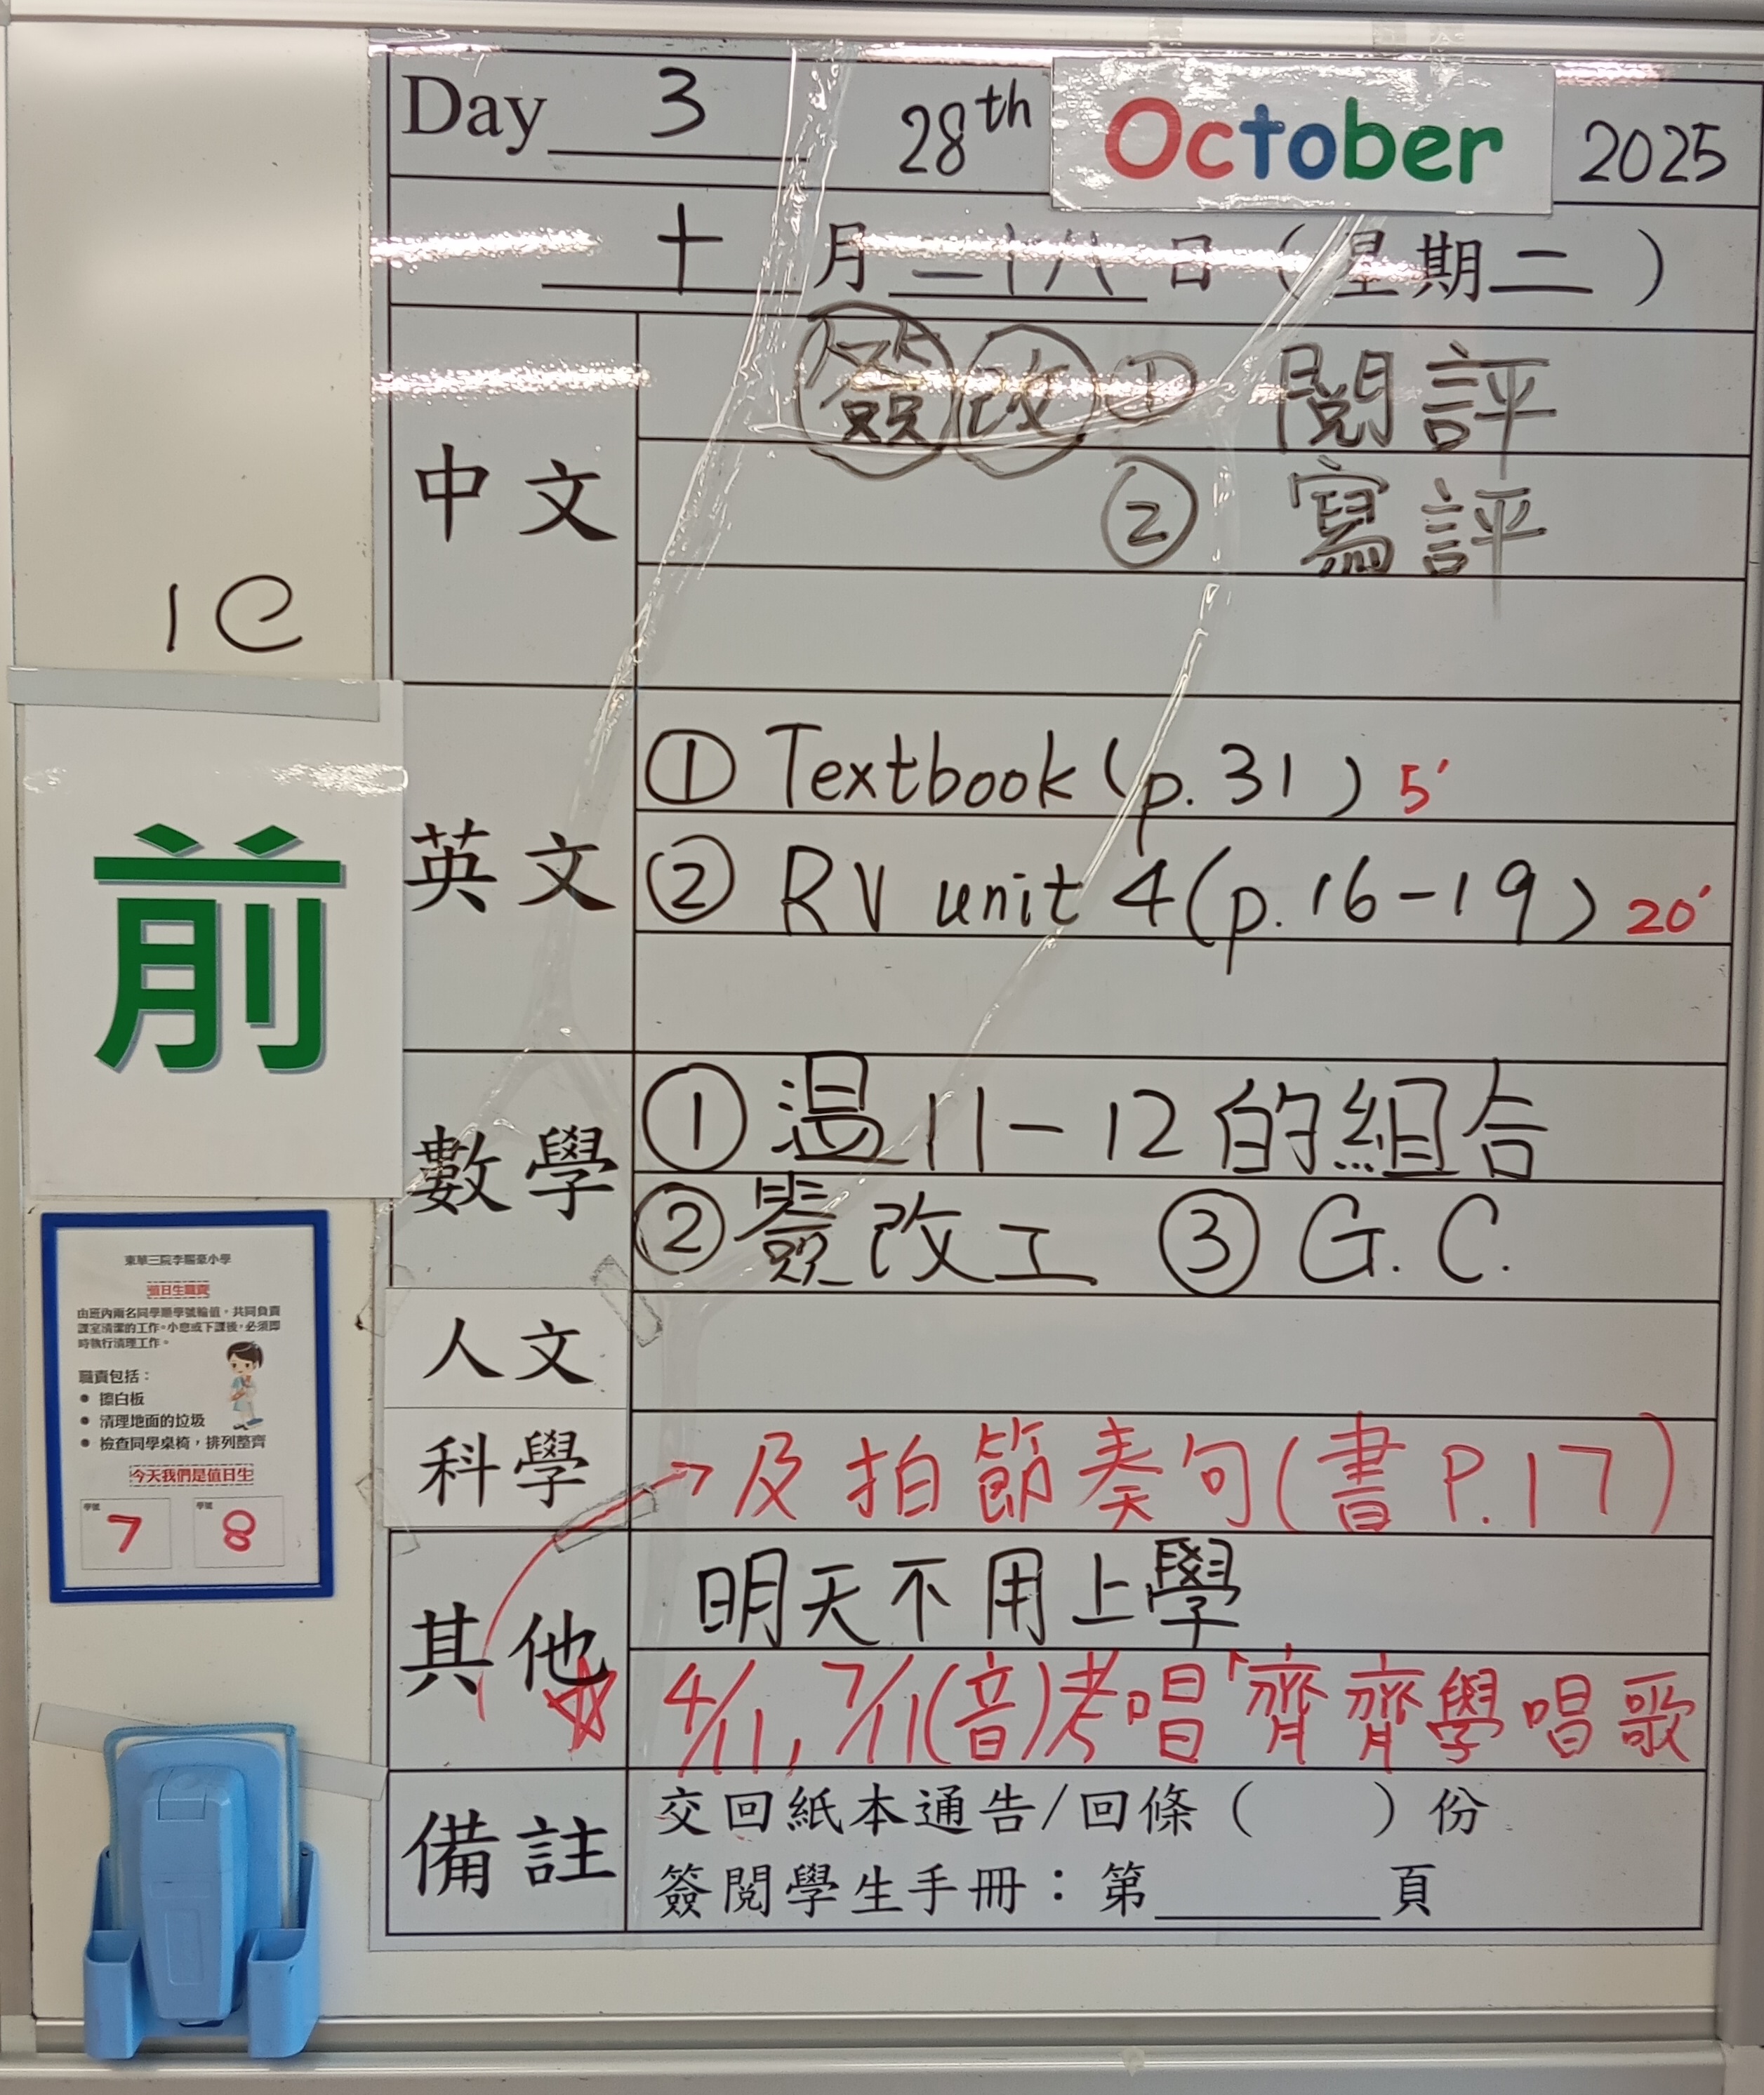 Day 3 28th October 2025
十月二十八日（星期二）
中文
簽 改 ① 閱評
② 寫評
1C
英文
① Textbook (p. 31) 5'
② RV unit 4 (p. 16-19) 20'
前
數學
① 温 11-12 的組合
② 簽改工 ③ G.C.
人文
科學
→ 及拍節奏句(書 P.17)
其他
明天不用上學
☆ 4/11, 7/11(音)考唱「齊齊學唱歌
備註
交回紙本通告/回條（ ）份
簽閱學生手冊：第______頁
東華三院李賜豪小學
值日生職責
由班內兩名同學順學號輪值，共同負責
課室清潔的工作。小息或下課後，必須即
時執行清理工作。
職責包括：
● 擦白板
● 清理地面的垃圾
● 檢查同學桌椅，排列整齊
今天我們是值日生
學號 學號
7 8